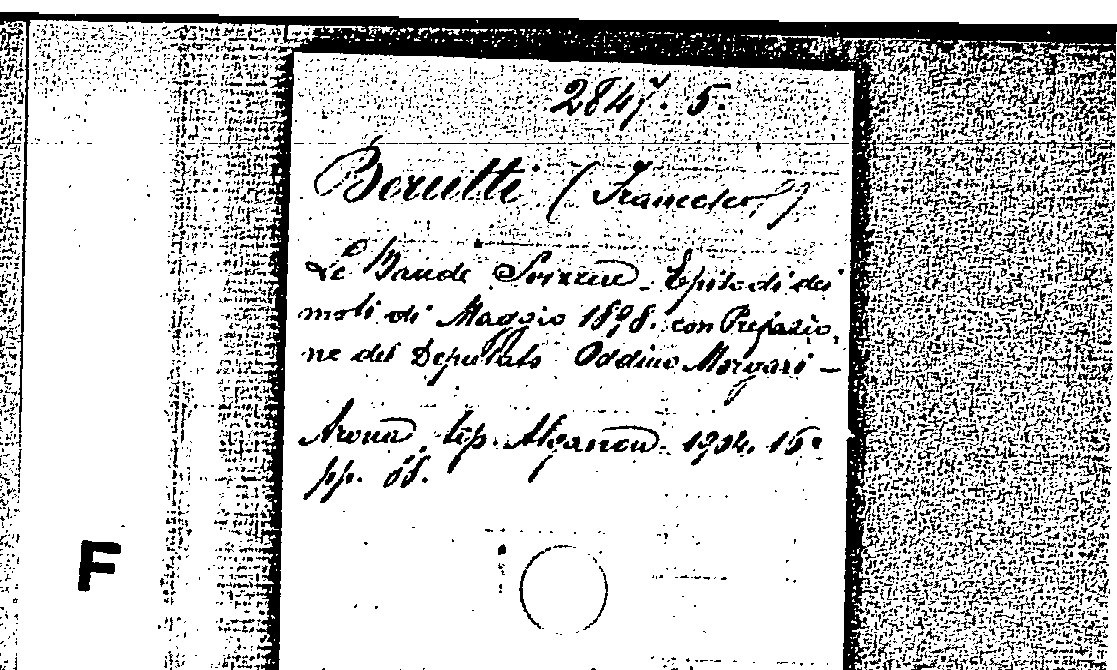 2847. 5.
Berutti (Francesco)
Le Bande Svizzere - Episodi dei
moti di Maggio 1898. con Prefazio,
ne del Deputato Oddino Morgari -
Arona, tip. 1904. 16º
pp.
F